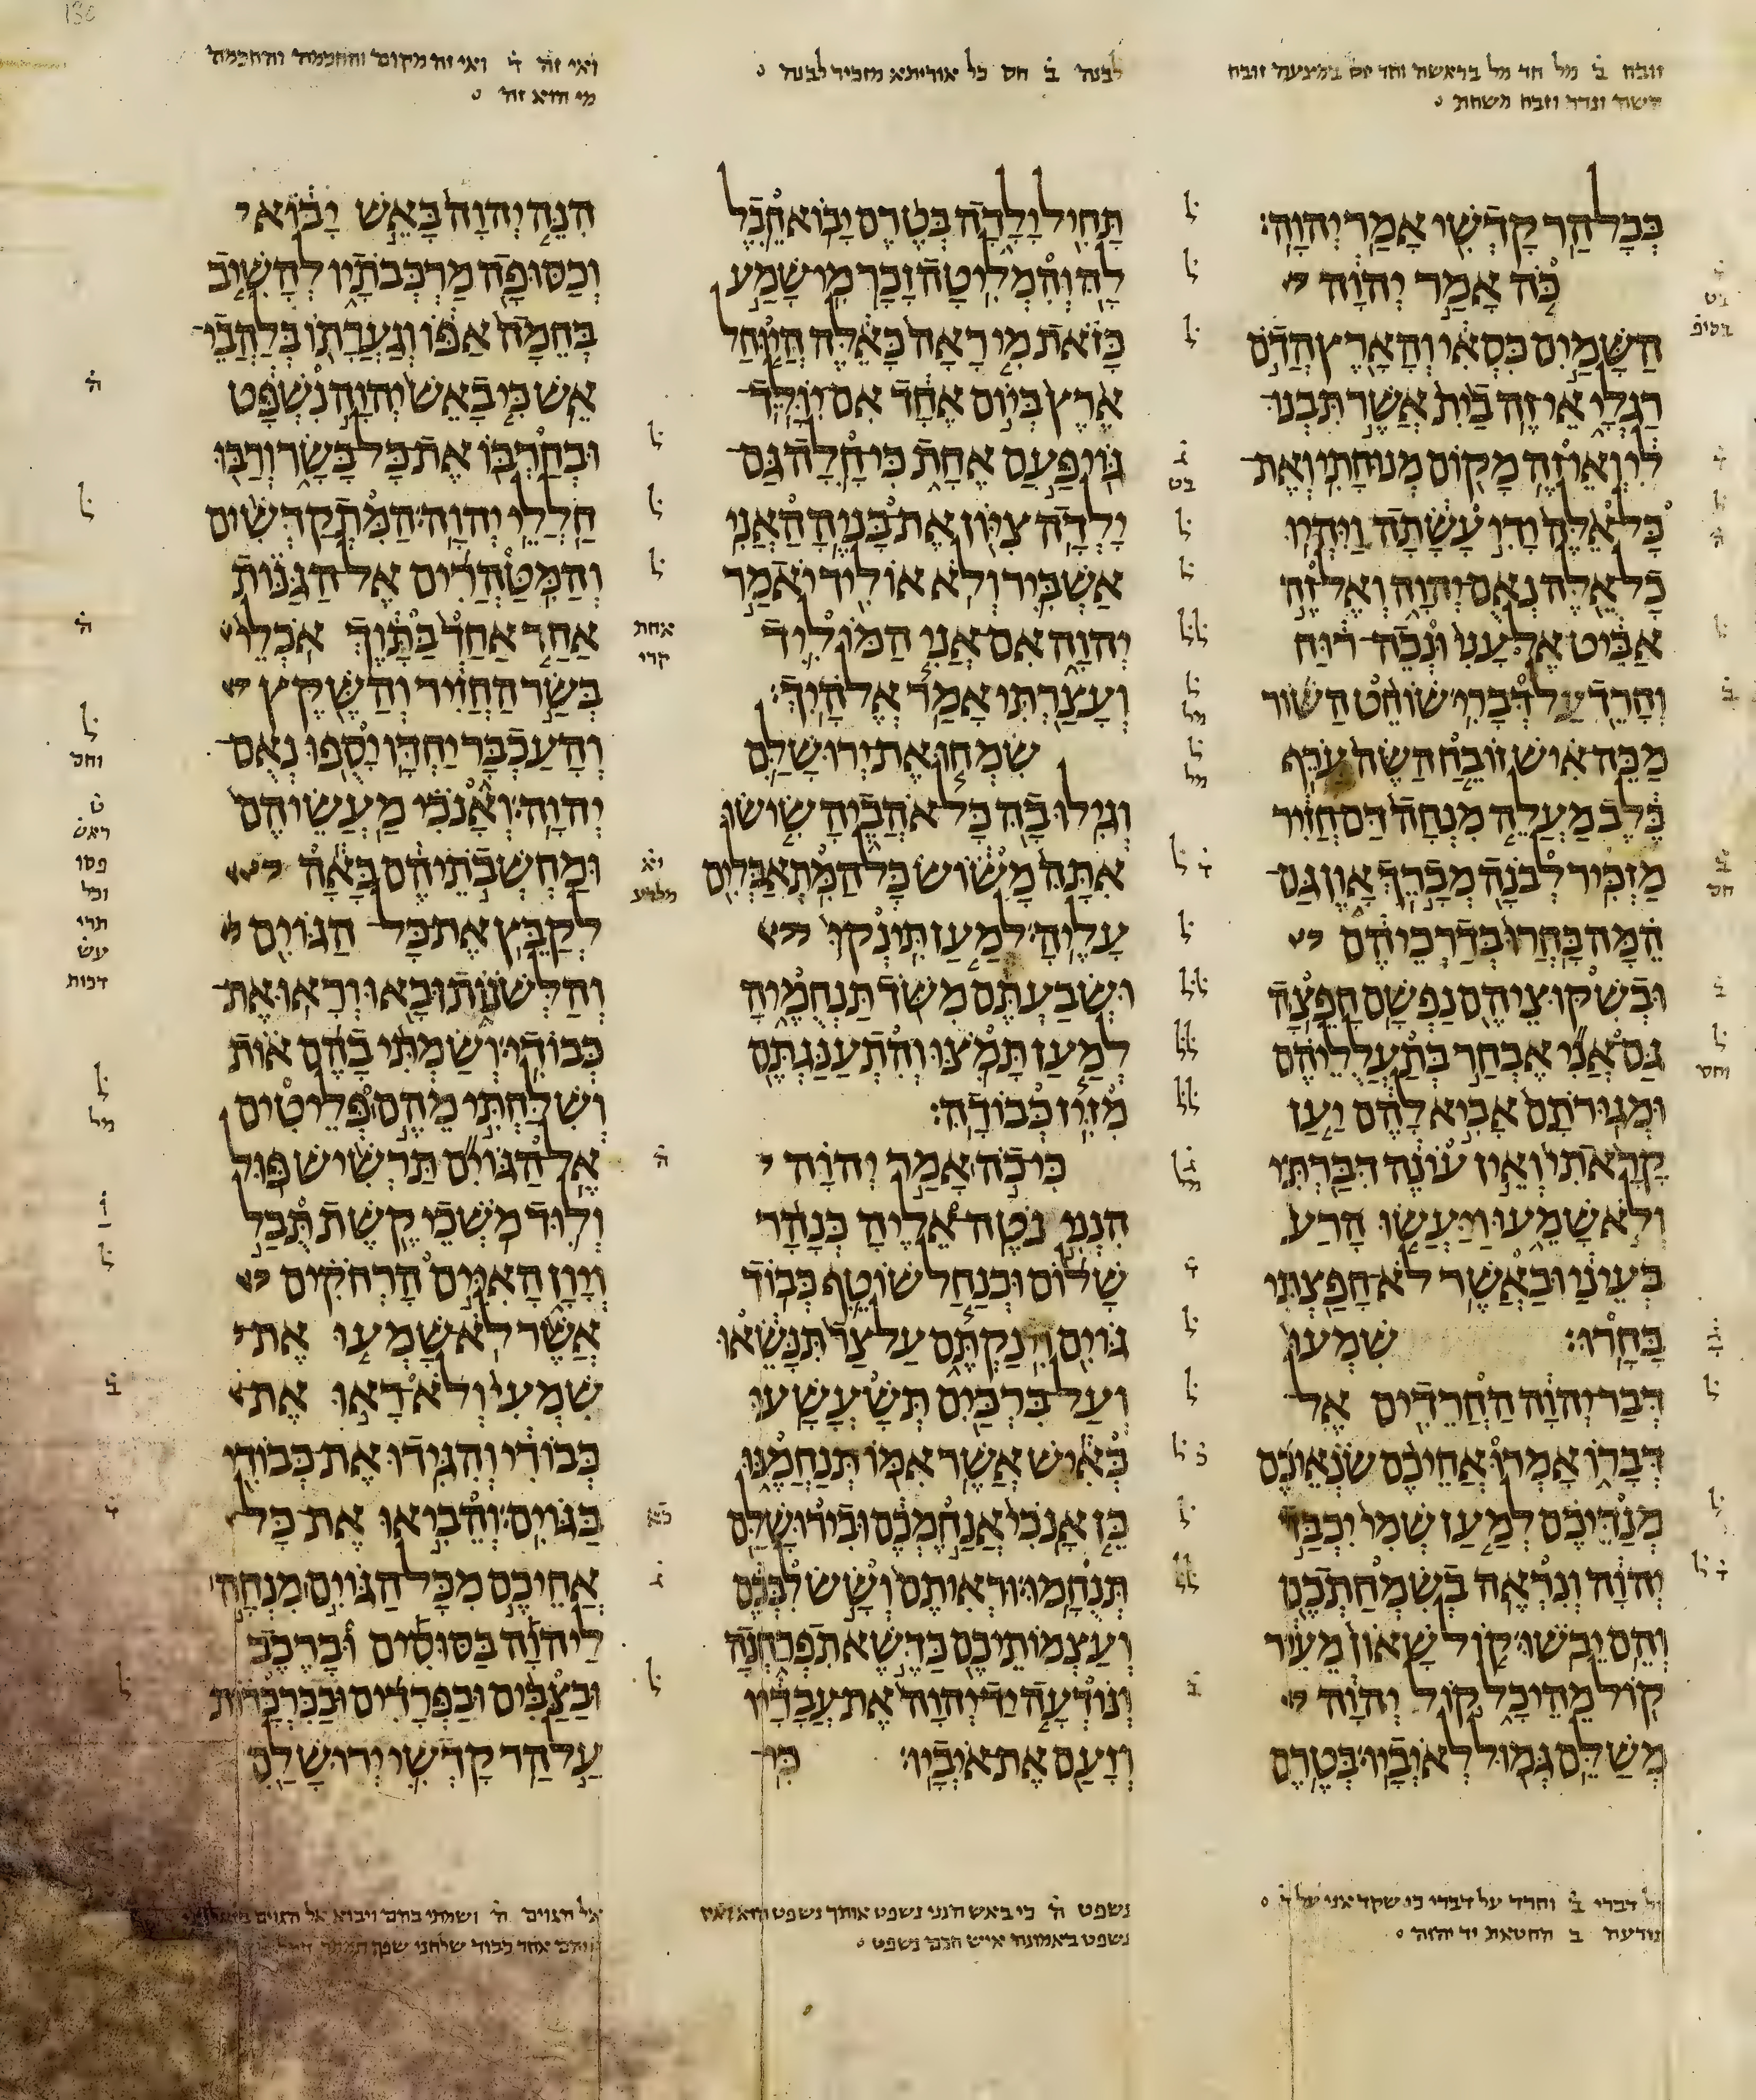 זובח ב מל חד מל בראשה וחד
לבנה ב חס כל אוריתא מזכיר לבנה
ואי זה ד ואי זה מקום והחכמה והחכמה
מי הוא זה
בכל הר קדשי אמר יהוה׃
כה אמר יהוה
השמים כסאי והארץ הדם
רגלי אי זה בית אשר תבנו
לי ואי זה מקום מנוחתי ואת
כל אלה ידי עשתה ויהיו
כל אלה נאם יהוה ואל זה
אביט אל עני ונכה רוח
וחרד על דברי שוחט השור
מכה איש זובח השה ערף
כלב מעלה מנחה דם חזיר
מזכיר לבנה מברך און גם
המה בחרו בדרכיהם
ובשקוציהם נפשם חפצה
גם אני אבחר בתעלליהם
ומגורתם אביא להם יען
קראתי ואין עונה דברתי
ולא שמעו ויעשו הרע
בעיני ובאשר לא חפצתי
בחרו׃ שמעו
דבר יהוה החרדים אל
דברו אמרו אחיכם שנאיכם
מנדיכם למען שמי יכבד
יהוה ונראה בשמחתכם
והם יבשו׃ קול שאון מעיר
קול מהיכל קול יהוה
משלם גמול לאיביו׃ בטרם
תחיל ילדה בטרם יבוא חבל
לה והמליטה זכר׃ מי שמע
כזאת מי ראה כאלה היוחל
ארץ ביום אחד אם יולד
גוי פעם אחת כי חלה גם
ילדה ציון את בניה׃ האני
אשביר ולא אוליד יאמר
יהוה אם אני המוליד
ועצרתי אמר אלהיך׃
שמחו את ירושלם
וגילו בה כל אהביה שישו
אתה משוש כל המתאבלים
עליה׃ למען תינקו
ושבעתם משד תנחמיה
למען תמצו והתענגתם
מזיז כבודה׃
כי כה אמר יהוה
הנני נטה אליה כנהר
שלום וכנחל שוטף כבוד
גוים וינקתם על צד תנשאו
ועל ברכים תשעשעו
כאיש אשר אמו תנחמנו
כן אנכי אנחמכם ובירושלם
תנחמו׃ וראיתם ושש לבכם
ועצמותיכם כדשא תפרחנה
ונודעה יד יהוה את עבדיו
וזעם את איביו׃ כי
הנה יהוה באש יבוא
וכסופה מרכבתיו להשיב
בחמה אפו וגערתו בלהבי
אש׃ כי באש יהוה נשפט
ובחרבו את כל בשר ורבו
חללי יהוה׃ המתקדשים
והמטהרים אל הגנות
אחר אחד בתוך אכלי
בשר החזיר והשקץ
והעכבר יחדו יספו נאם
יהוה׃ ואנכי מעשיהם
ומחשבתיהם באה
לקבץ את כל הגוים
והלשנות ובאו וראו את
כבודי׃ ושמתי בהם אות
ושלחתי מהם פליטים
אל הגוים תרשיש פול
ולוד משכי קשת תבל
ויון האיים הרחקים
אשר לא שמעו את
שמעי ולא ראו את
כבודי והגידו את כבודי
בגוים׃ והביאו את כל
אחיכם מכל הגוים מנחה
ליהוה בסוסים וברכב
ובצבים ובפרדים ובכרכרות
על הר קדשי ירושלם
דברי ב וחרד על דברי כי שקד אני על ד
נודעה ב החטאת יד יהוה
נשפט ה כי באש הנני נשפט אותך נשפט
נשפט באמונה איש חכם נשפט
אל הגוים ה ושמתי בהם ויבוא אל הגוים